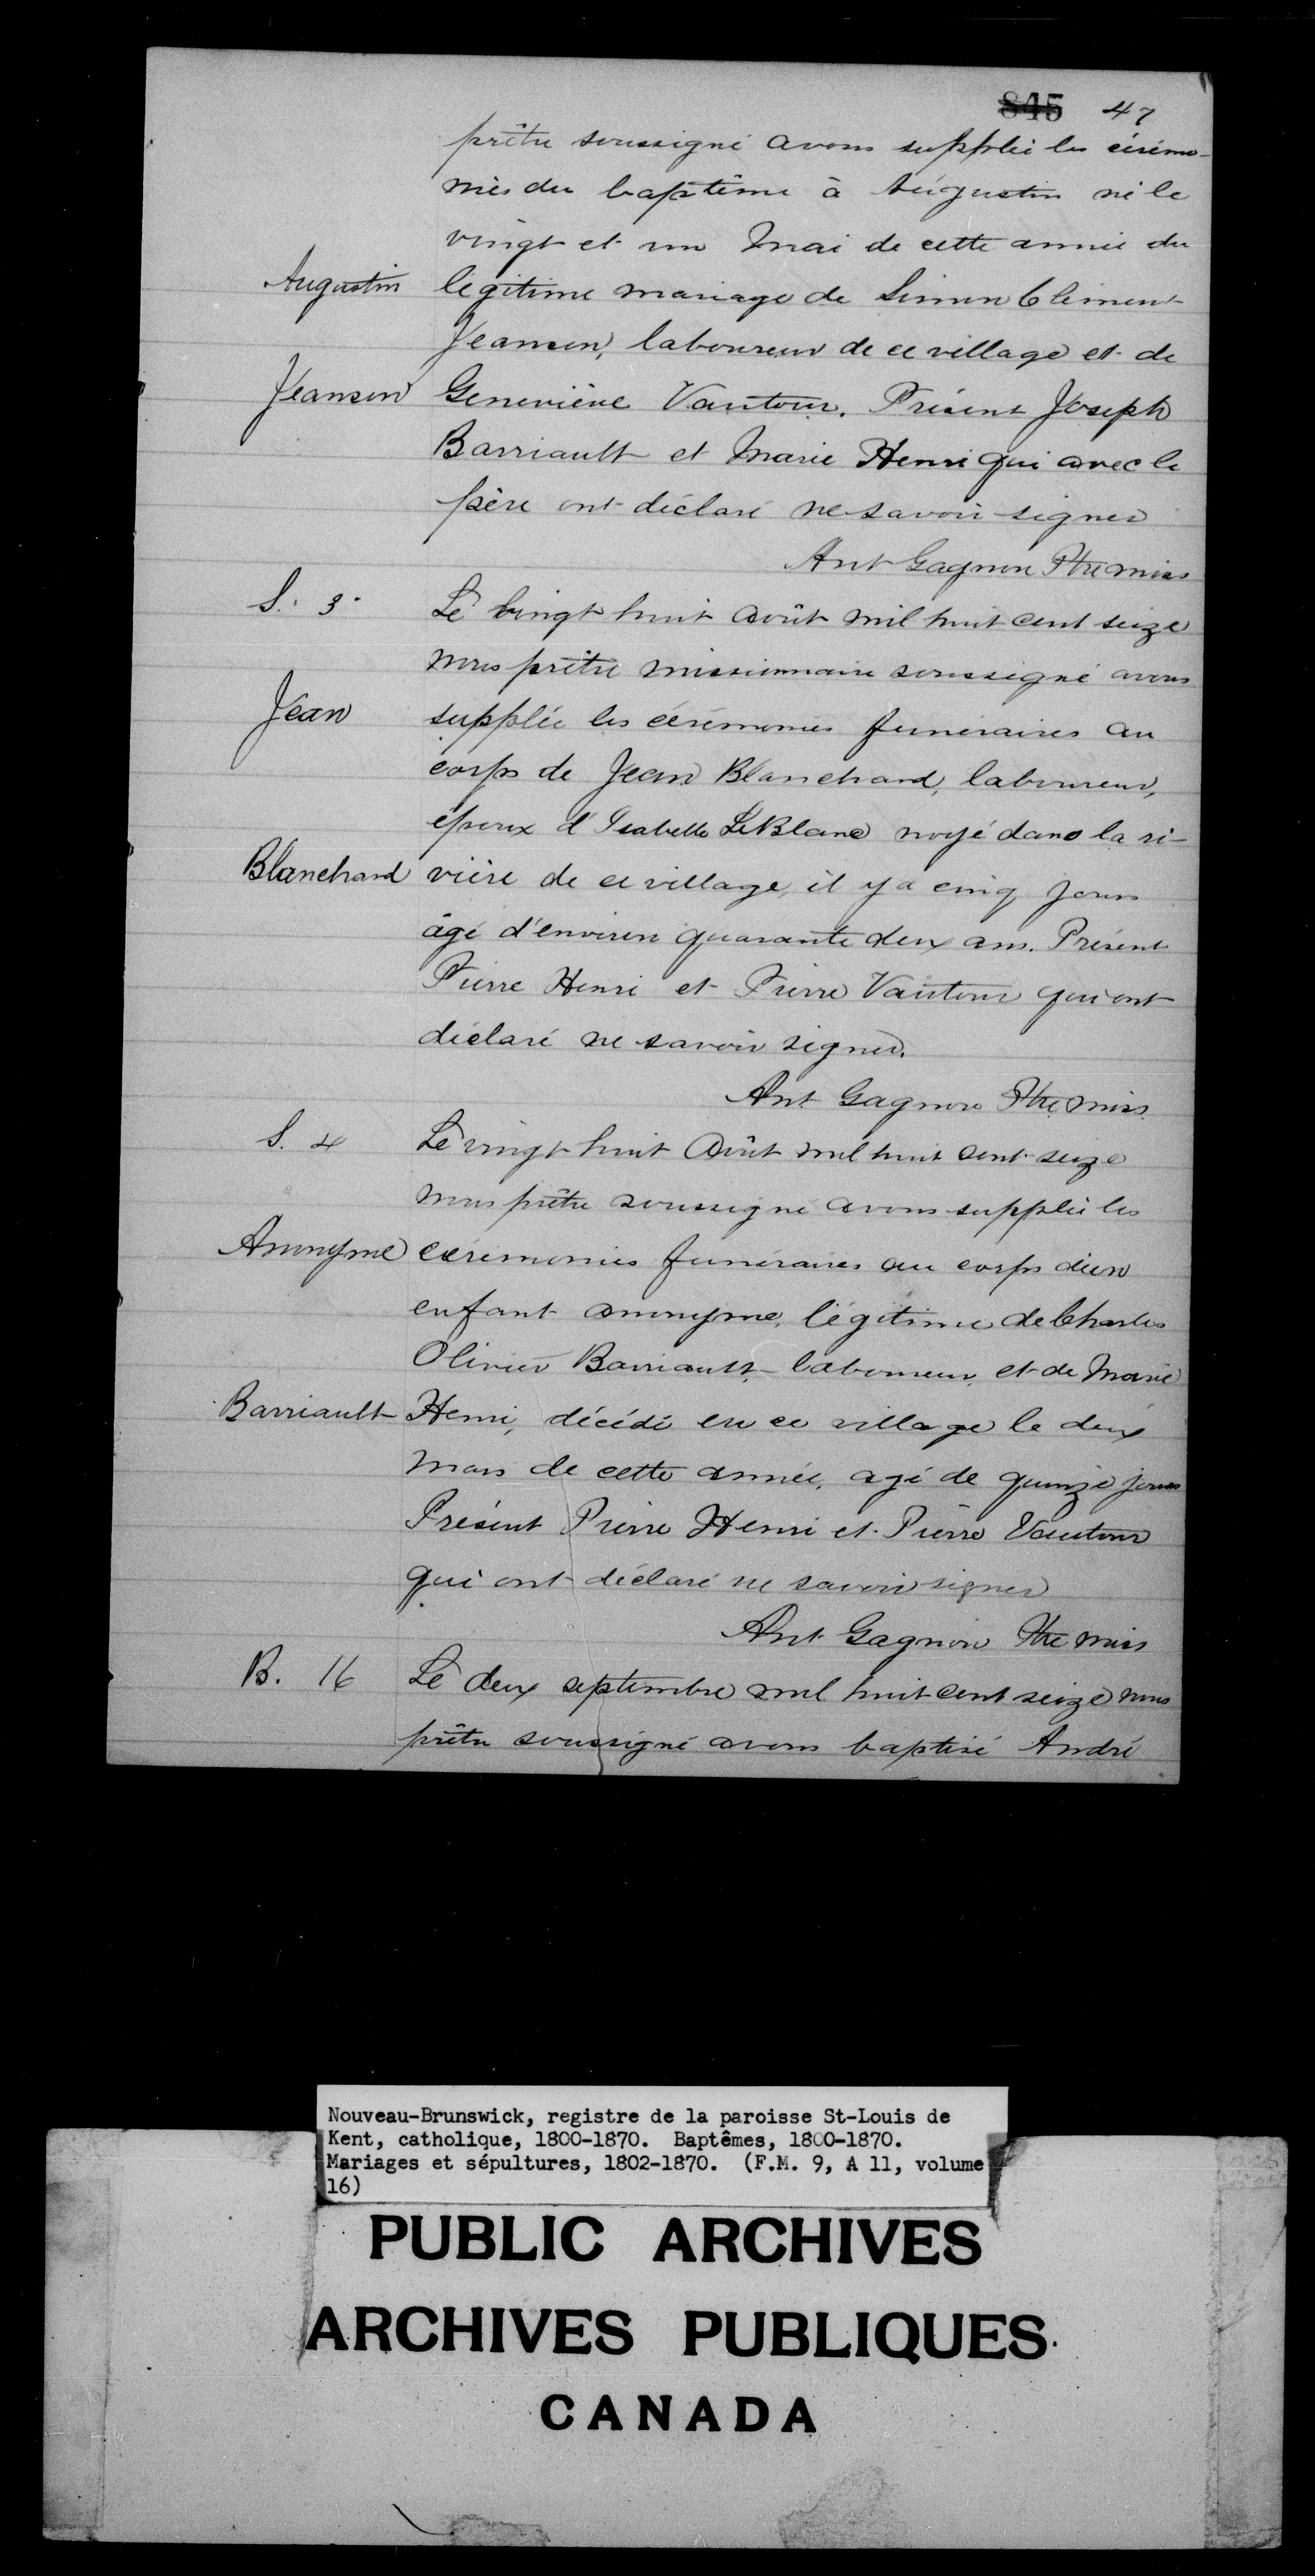 845 47
prêtre soussigné avons supplée les cérémo-
nies du baptême à Augustin né le
vingt et un Mai de cette année du
Augustin légitime mariage de Simon Clément
Jeanson, laboureur de ce village et de
Jeanson Geneviève Vautour. Présent Joseph
Barriault et Marie Henri qui avec le
père ont déclaré ne savoir signer
Ant Gagnon Ptre miss
S. 3. Le vingt huit août mil huit cent seize
nous prêtre missionnaire soussigné avons
Jean supplée les cérémonies funéraires au
corps de Jean Blanchard, laboureur,
époux d'Isabelle LeBlanc noyé dans la ri-
Blanchard vière de ce village, il y a cinq jours
âgé d'environ quarante deux ans. Présent
Pierre Henri et Pierre Vautour qui ont
déclaré ne savoir signer.
Ant Gagnon Ptre miss
S. 4 Le vingt huit Août mil huit cent seize
nous prêtre soussigné avons supplée les
Anonyme cérémonies funéraires au corps d'un
enfant anonyme, légitime de Charles
Olivier Barriault, laboureur, et de Marie
Barriault Henri, décédé en ce village le deux
mars de cette année, agé de quinze jours
Présent Pierre Henri et Pierre Vautour
qui ont déclaré ne savoir signer
Ant Gagnon Ptre miss
B. 16 Le deux septembre mil huit cent seize nous
prêtre soussigné avons baptisé André
Nouveau-Brunswick, registre de la paroisse St-Louis de
Kent, catholique, 1800-1870. Baptêmes, 1800-1870.
Mariages et sépultures, 1802-1870. (F.M. 9, A 11, volume
16)
PUBLIC ARCHIVES
ARCHIVES PUBLIQUES
CANADA